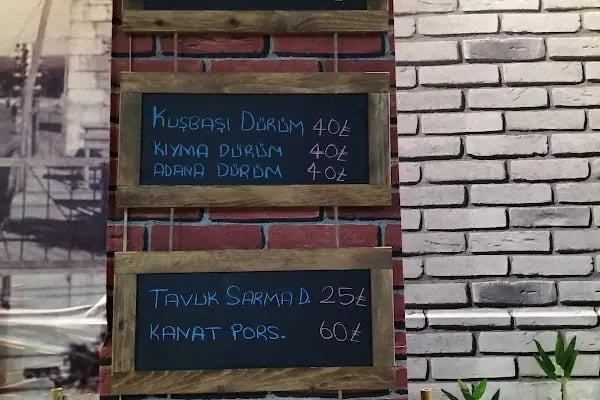 KUŞBAŞI DÜRÜM 40₺
KIYMA DÜRÜM 40₺
ADANA DÜRÜM 40₺
TAVUK SARMA D. 25₺
KANAT PORS. 60₺